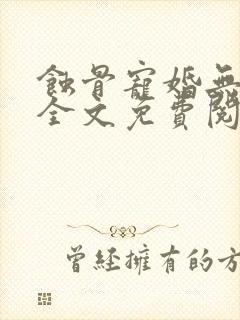 蝕骨寵婚無
全文免費閱
曾經擁有的方